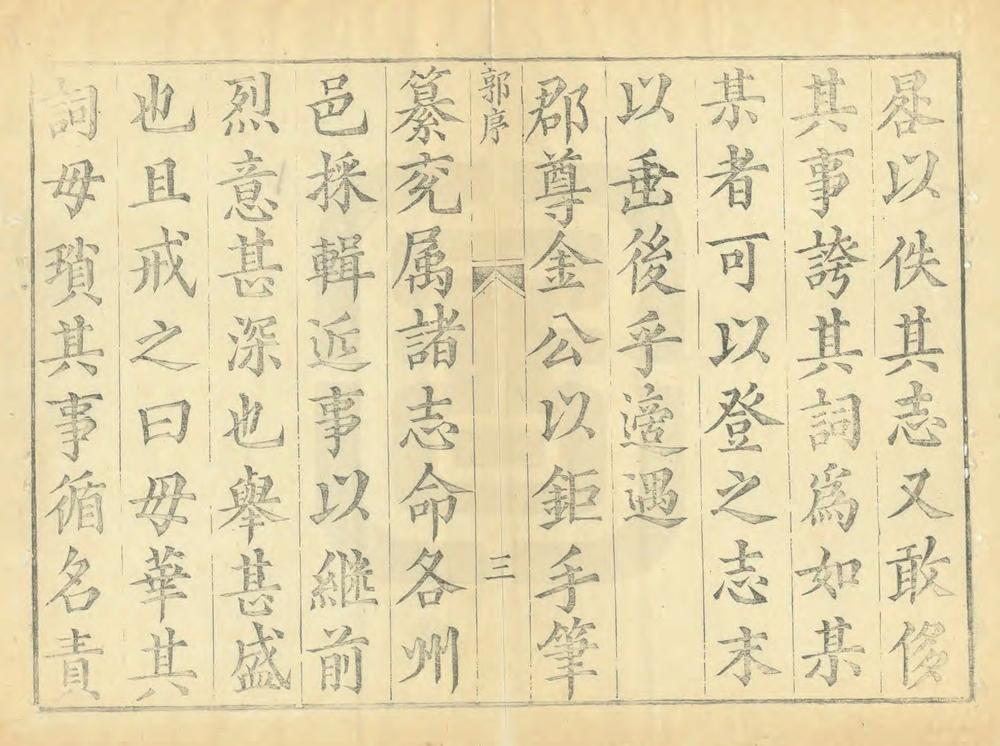 畧以佚其志又敢侈
其事誇其詞爲如某
某者可以登之志末
以垂後乎適遇
郡尊金公以鉅手筆
郭序
三
纂兖属諸志命各州
邑採輯近事以継前
烈意甚深也舉甚盛
也且戒之曰毋華其
詞毋瑣其事循名責